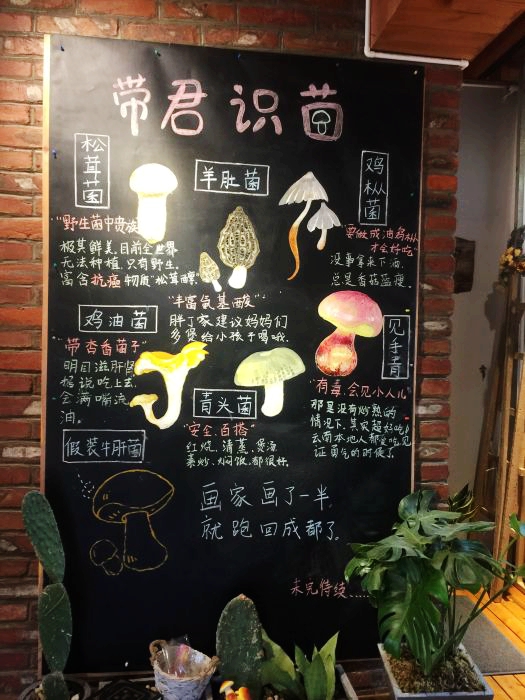 带君识菌
松茸菌
"野生菌中贵族"
极其鲜美.目前全世界
无法种植.只有野生.
富含抗癌物质"松茸醇"
羊肚菌
"丰富氨基酸"
胖丁家建议妈妈们
多煲给小孩子喝哦.
鸡枞菌
要做成油鸡枞
才会好吃
没事拿来下酒.
总是香菇蓝瘦.
鸡油菌
"带杏香菌子"
明目滋肝
据说吃上去
会满嘴流
油。
青头菌
"安全.百搭"
红烧.清蒸.煲汤.
素炒.焖饭.都很好.
见手青
"有毒.会见小人儿"
那是没有炒熟的
情况下,其实超好吃!
云南本地人都爱吃.见
证勇气的时候了.
假装牛肝菌
画家画了一半.
就跑回成都了.
未完待续......